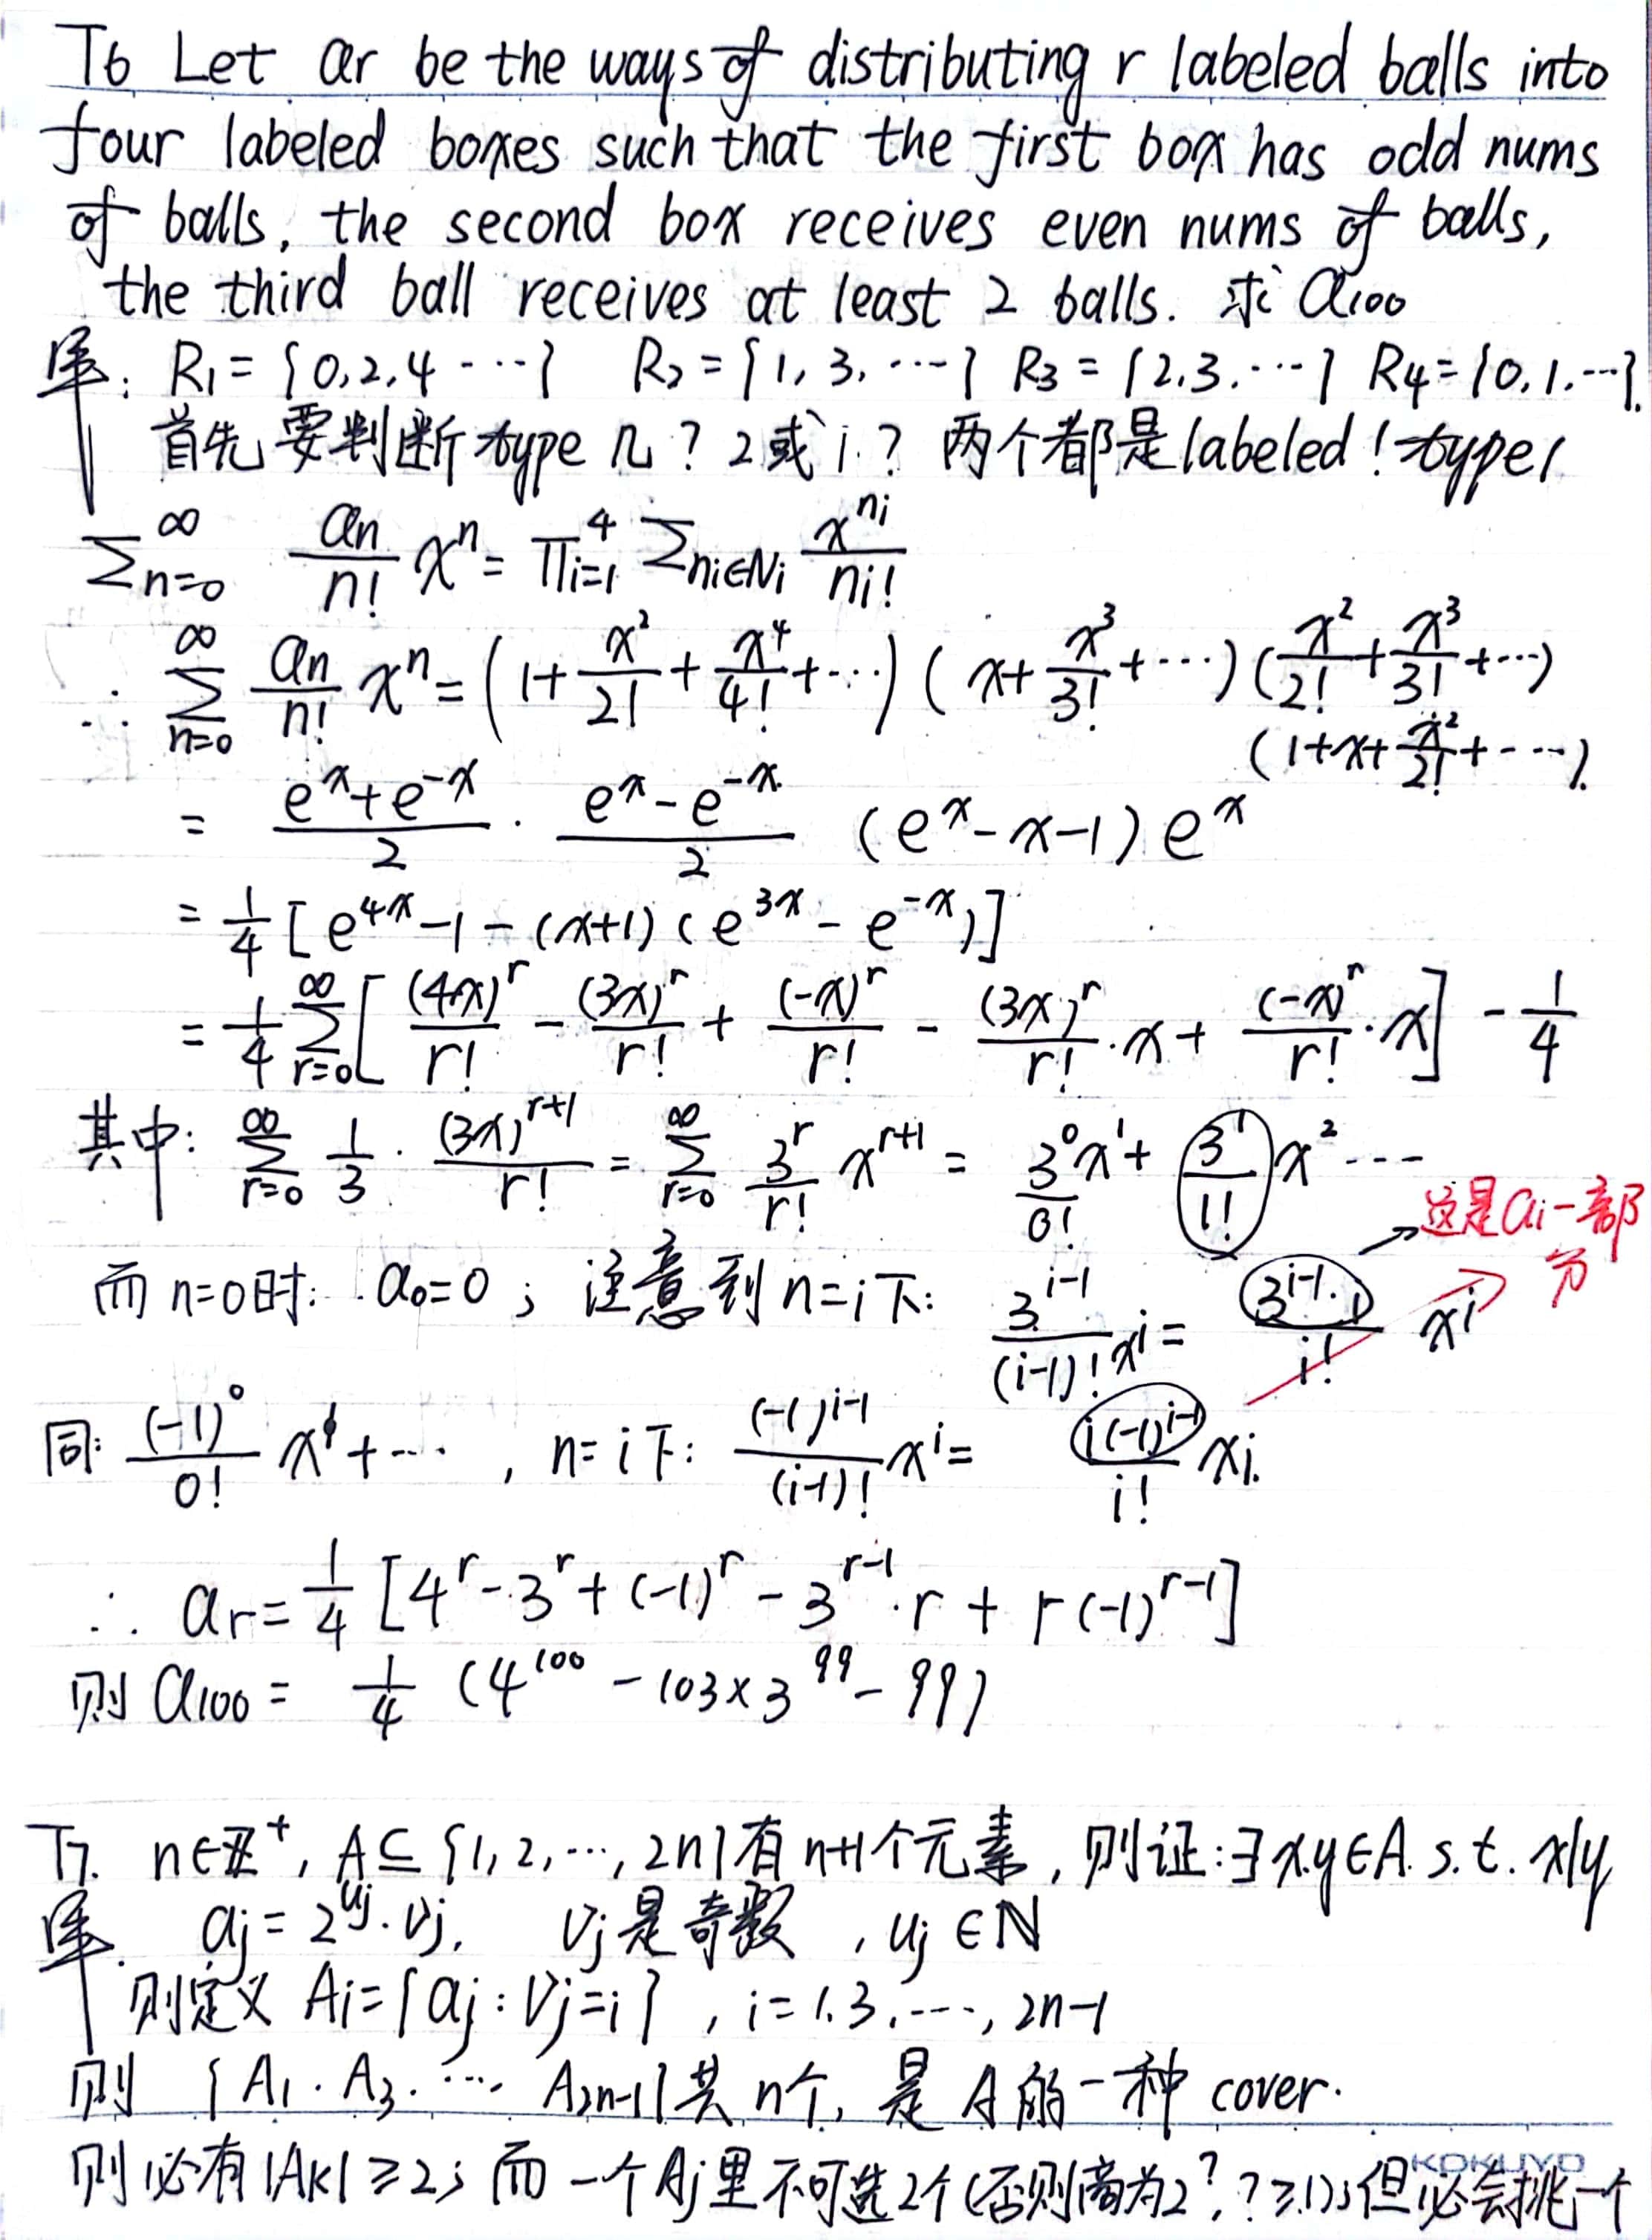 T6 Let ar be the ways of distributing r labeled balls into
four labeled boxes such that the first box has odd nums
of balls, the second box receives even nums of balls,
the third ball receives at least 2 balls. 求 a₁₀₀
解: R₁ = {0,2,4 ⋯} R₂ = {1, 3, ⋯} R₃ = {2,3,⋯} R₄ = {0,1,⋯}.
首先要判断 type 几? 2或1? 两个都是labeled! type1
∑ₙ₌₀^∞ aₙ/n! xⁿ = ∏ᵢ₌₁⁴ ∑_{nᵢ∈Nᵢ} x^{nᵢ}/nᵢ!
∴ ∑ₙ₌₀^∞ aₙ/n! xⁿ = (1 + x²/2! + x⁴/4! + ⋯) (x + x³/3! + ⋯) (x²/2! + x³/3! + ⋯)
(1 + x + x²/2! + ⋯).
= (eˣ + e⁻ˣ)/2 · (eˣ - e⁻ˣ)/2 (eˣ - x - 1) eˣ
= 1/4 [e⁴ˣ - 1 - (x+1) (e³ˣ - e⁻ˣ)]
= 1/4 ∑ᵣ₌₀^∞ [(4x)ʳ/r! - (3x)ʳ/r! + (-x)ʳ/r! - (3x)ʳ/r! · x + (-x)ʳ/r! · x] - 1/4
其中: ∑ᵣ₌₀^∞ 1/3 · (3x)ʳ⁺¹/r! = ∑ᵣ₌₀^∞ 3ʳ/r! xʳ⁺¹ = 3⁰/0! x¹ + 3¹/1! x² ⋯
这是aᵢ一部分
而 n=0时: a₀=0 ; 注意到 n=i下: 3ⁱ⁻¹/(i-1)! xⁱ = 3ⁱ⁻¹·i/i! xⁱ
同: (-1)⁰/0! x¹ + ⋯ , n=i下: (-1)ⁱ⁻¹/(i-1)! xⁱ = i(-1)ⁱ⁻¹/i! xⁱ.
∴ aᵣ = 1/4 [4ʳ - 3ʳ + (-1)ʳ - 3ʳ⁻¹·r + r(-1)ʳ⁻¹]
则 a₁₀₀ = 1/4 (4¹⁰⁰ - 103×3⁹⁹ - 99)
T7. n∈Z⁺, A⊆{1,2,⋯,2n}有n+1个元素, 则证: ∃x,y∈A. s.t. x|y
解. aⱼ = 2^{uⱼ}·vⱼ, vⱼ是奇数 , uⱼ∈N
则定义 Aᵢ = {aⱼ : vⱼ=i} , i=1,3,⋯,2n-1
则 {A₁, A₃, ⋯ A₂ₙ₋₁}共n个, 是A的一种 cover.
则必有|Aₖ|≥2; 而一个Aⱼ里不可选2个(否则商为2^?, ?≥1); 但必会挑一个
KOKUYO